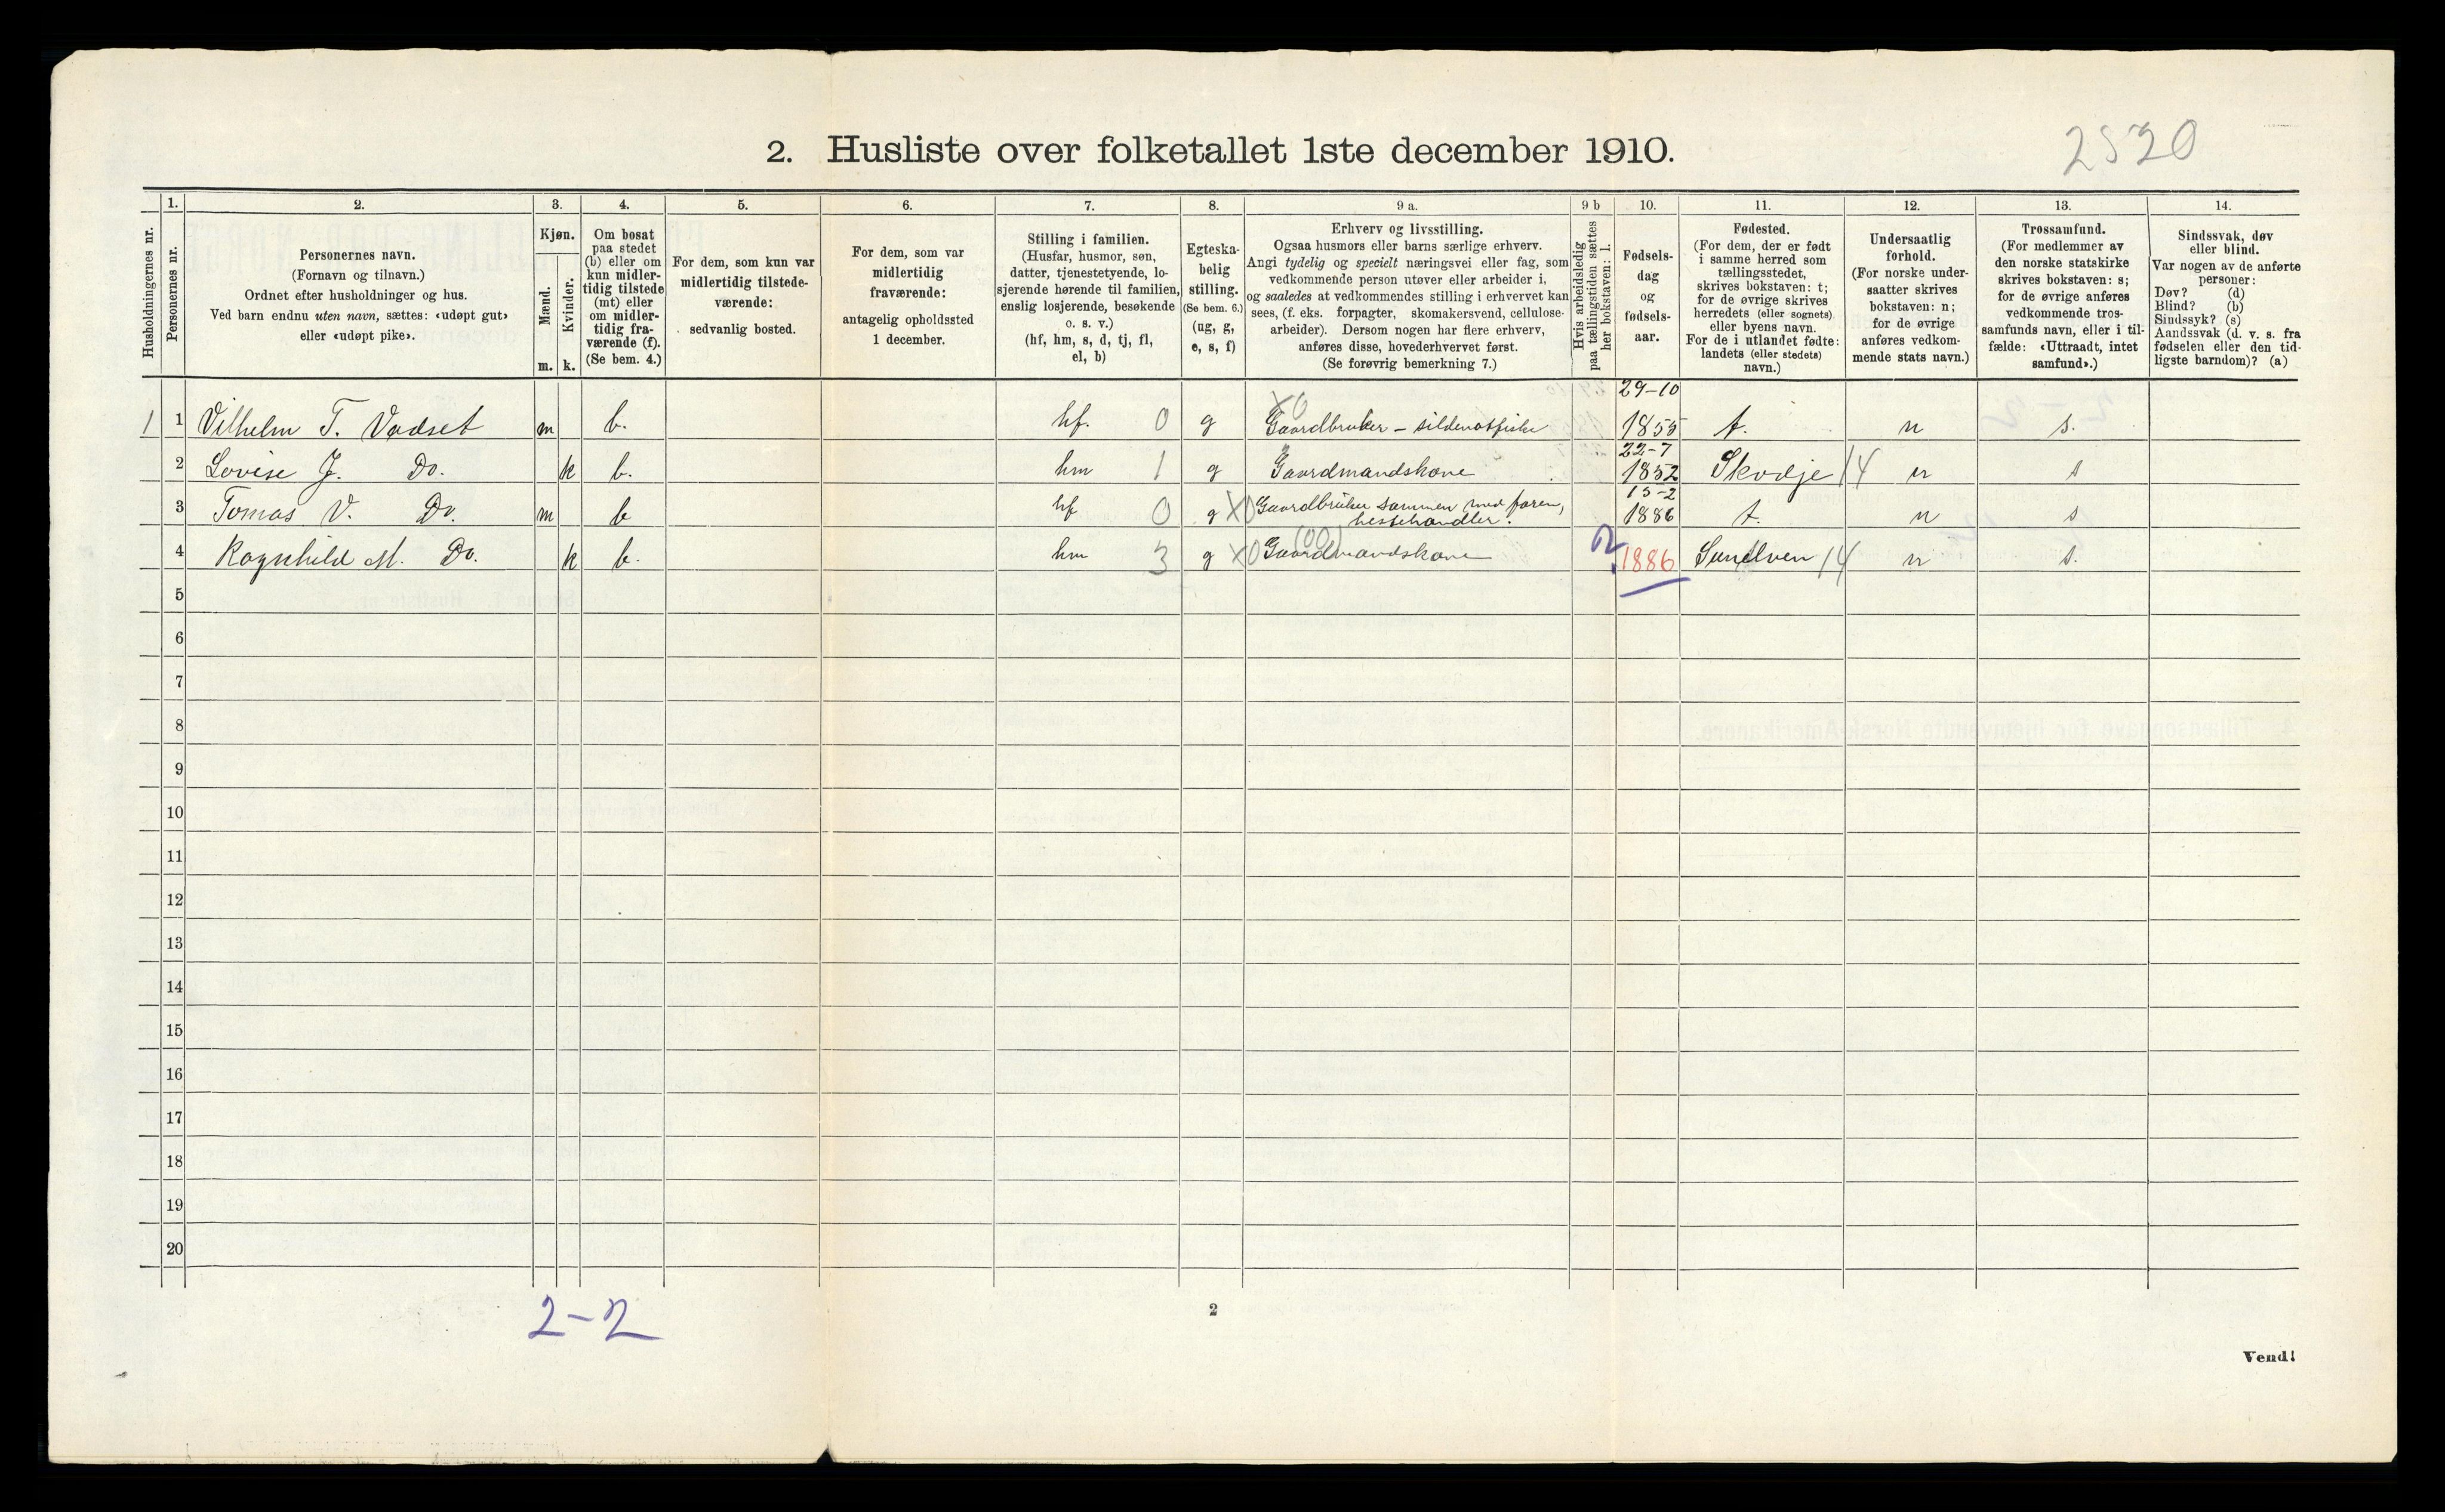 2. Husliste over folketallet 1ste december 1910.
2520
Husholdningernes nr.
1.
Personernes nr.
2.
Personernes navn.
(Fornavn og tilnavn.)
Ordnet efter husholdninger og hus.
Ved barn endnu uten navn, sættes: «udøpt gut»
eller «udøpt pike».
3.
Kjøn.
Mænd.
Kvinder.
m. k.
4.
Om bosat
paa stedet
(b) eller om
kun midler-
tidig tilstede
(mt) eller
om midler-
tidig fra-
værende (f).
(Se bem. 4.)
5.
For dem, som kun var
midlertidig tilstede-
værende:
sedvanlig bosted.
6.
For dem, som var
midlertidig
fraværende:
antagelig opholdssted
1 december.
7.
Stilling i familien.
(Husfar, husmor, søn,
datter, tjenestetyende, lo-
sjerende hørende til familien,
enslig losjerende, besøkende
o. s. v.)
(hf, hm, s, d, tj, fl,
el, b)
8.
Egteska-
belig
stilling.
(Se bem. 6.)
(ug, g,
e, s, f)
9 a.
Erhverv og livsstilling.
Ogsaa husmors eller barns særlige erhverv.
Angi tydelig og specielt næringsvei eller fag, som
vedkommende person utøver eller arbeider i,
og saaledes at vedkommendes stilling i erhvervet kan
sees, (f. eks. forpagter, skomakersvend, cellulose-
arbeider). Dersom nogen har flere erhverv,
anføres disse, hovederhvervet først.
(Se forøvrig bemerkning 7.)
9 b
Hvis arbeidsledig
paa tællingstiden sættes
her bokstaven: l.
10.
Fødsels-
dag
og
fødsels-
aar.
11.
Fødested.
(For dem, der er født
i samme herred som
tællingsstedet,
skrives bokstaven: t;
for de øvrige skrives
herredets (eller sognets)
eller byens navn.
For de i utlandet fødte:
landets (eller stedets)
navn.)
12.
Undersaatlig
forhold.
(For norske under-
saatter skrives
bokstaven: n;
for de øvrige
anføres vedkom-
mende stats navn.)
13.
Trossamfund.
(For medlemmer av
den norske statskirke
skrives bokstaven: s;
for de øvrige anføres
vedkommende tros-
samfunds navn, eller i til-
fælde: «Uttraadt, intet
samfund».)
14.
Sindssvak, døv
eller blind.
Var nogen av de anførte
personer:
Døv? (d)
Blind? (b)
Sindssyk? (s)
Aandssvak (d. v. s. fra
fødselen eller den tid-
ligste barndom)? (a)
1 1 Vilhelm T. Vadset m b. hf. 0 g X0 Gaardbruker – sildenotfiske 29-10 1855 t. n s.
2 Lovise J. Do. k b. hm 1 g Gaardmandskone 22-7 1852 Skodje 14 n s
3 Tomas V. Do. m b hf 0 g X0 Gaardbruker sammen med faren,
hestehandler. 15-2 1886 t. n s
4 Ragnhild M. Do. k b. hm 3 g X0 (00) Gaardmandskone ? 1886 Sunelven 14 n s.
5
6
7
8
9
10
11
12
13
14
15
16
17
18
19
20
2-2
2
Vend!